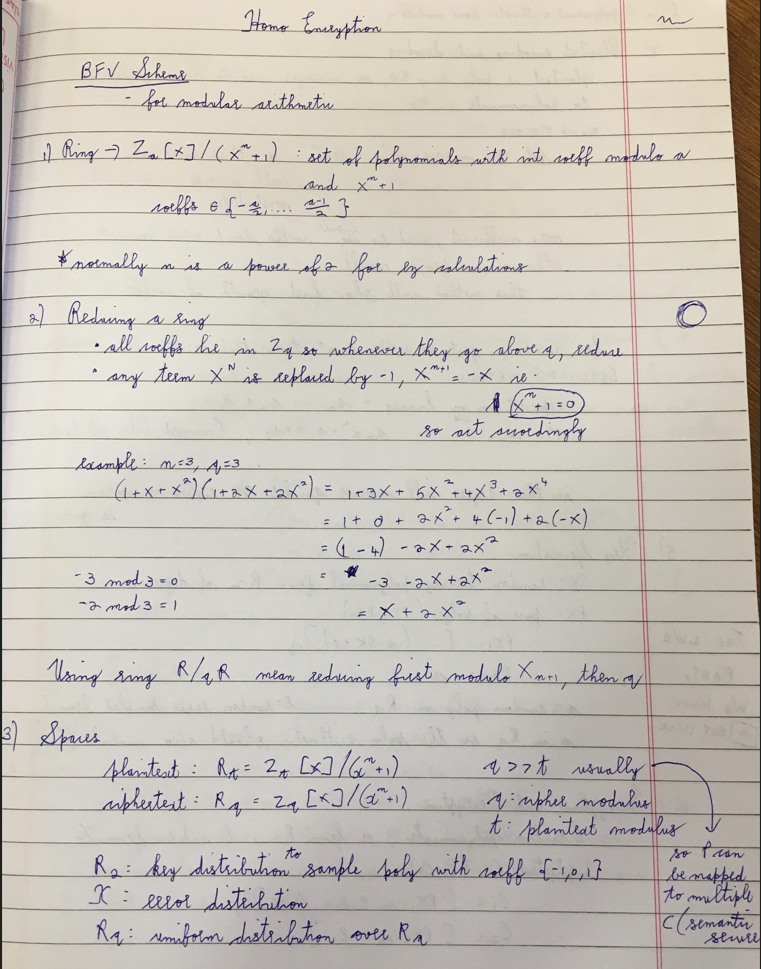 Homo Encryption
BFV Scheme
- for modular arithmetic
1) Ring → Z_a [x] / (x^n + 1) : set of polynomials with int coeff modulo a
and x^n + 1
coeffs ∈ {-a/2, .... (a-1)/2}
* normally n is a power of 2 for ez calculations
2) Reducing a ring
• all coeffs lie in Z_q so whenever they go above q, reduce
• any term X^N is replaced by -1, X^{n+1} = -X ie.
X^n + 1 = 0
so act accordingly
example: n=3, q=3
(1+x+x²)(1+2x+2x²) = 1+3x+5x²+4x³+2x⁴
= 1+0+2x²+4(-1)+2(-x)
= (1-4) -2x+2x²
-3 mod 3 = 0 = -3 -2x+2x²
-2 mod 3 = 1 = x+2x²
Using ring R/qR mean reducing first modulo X_{n+1}, then q
3) Spaces
plaintext : R_t = Z_t [x] / (x^n+1) q >> t usually
ciphertext : R_q = Z_q [x] / (x^n+1) q : cipher modulus
t : plaintext modulus
so P can
be mapped
to multiple
C (semantic
secure
R_2 : key distribution to sample poly with coeff {-1,0,1}
X : error distribution
R_q : uniform distribution over R_q